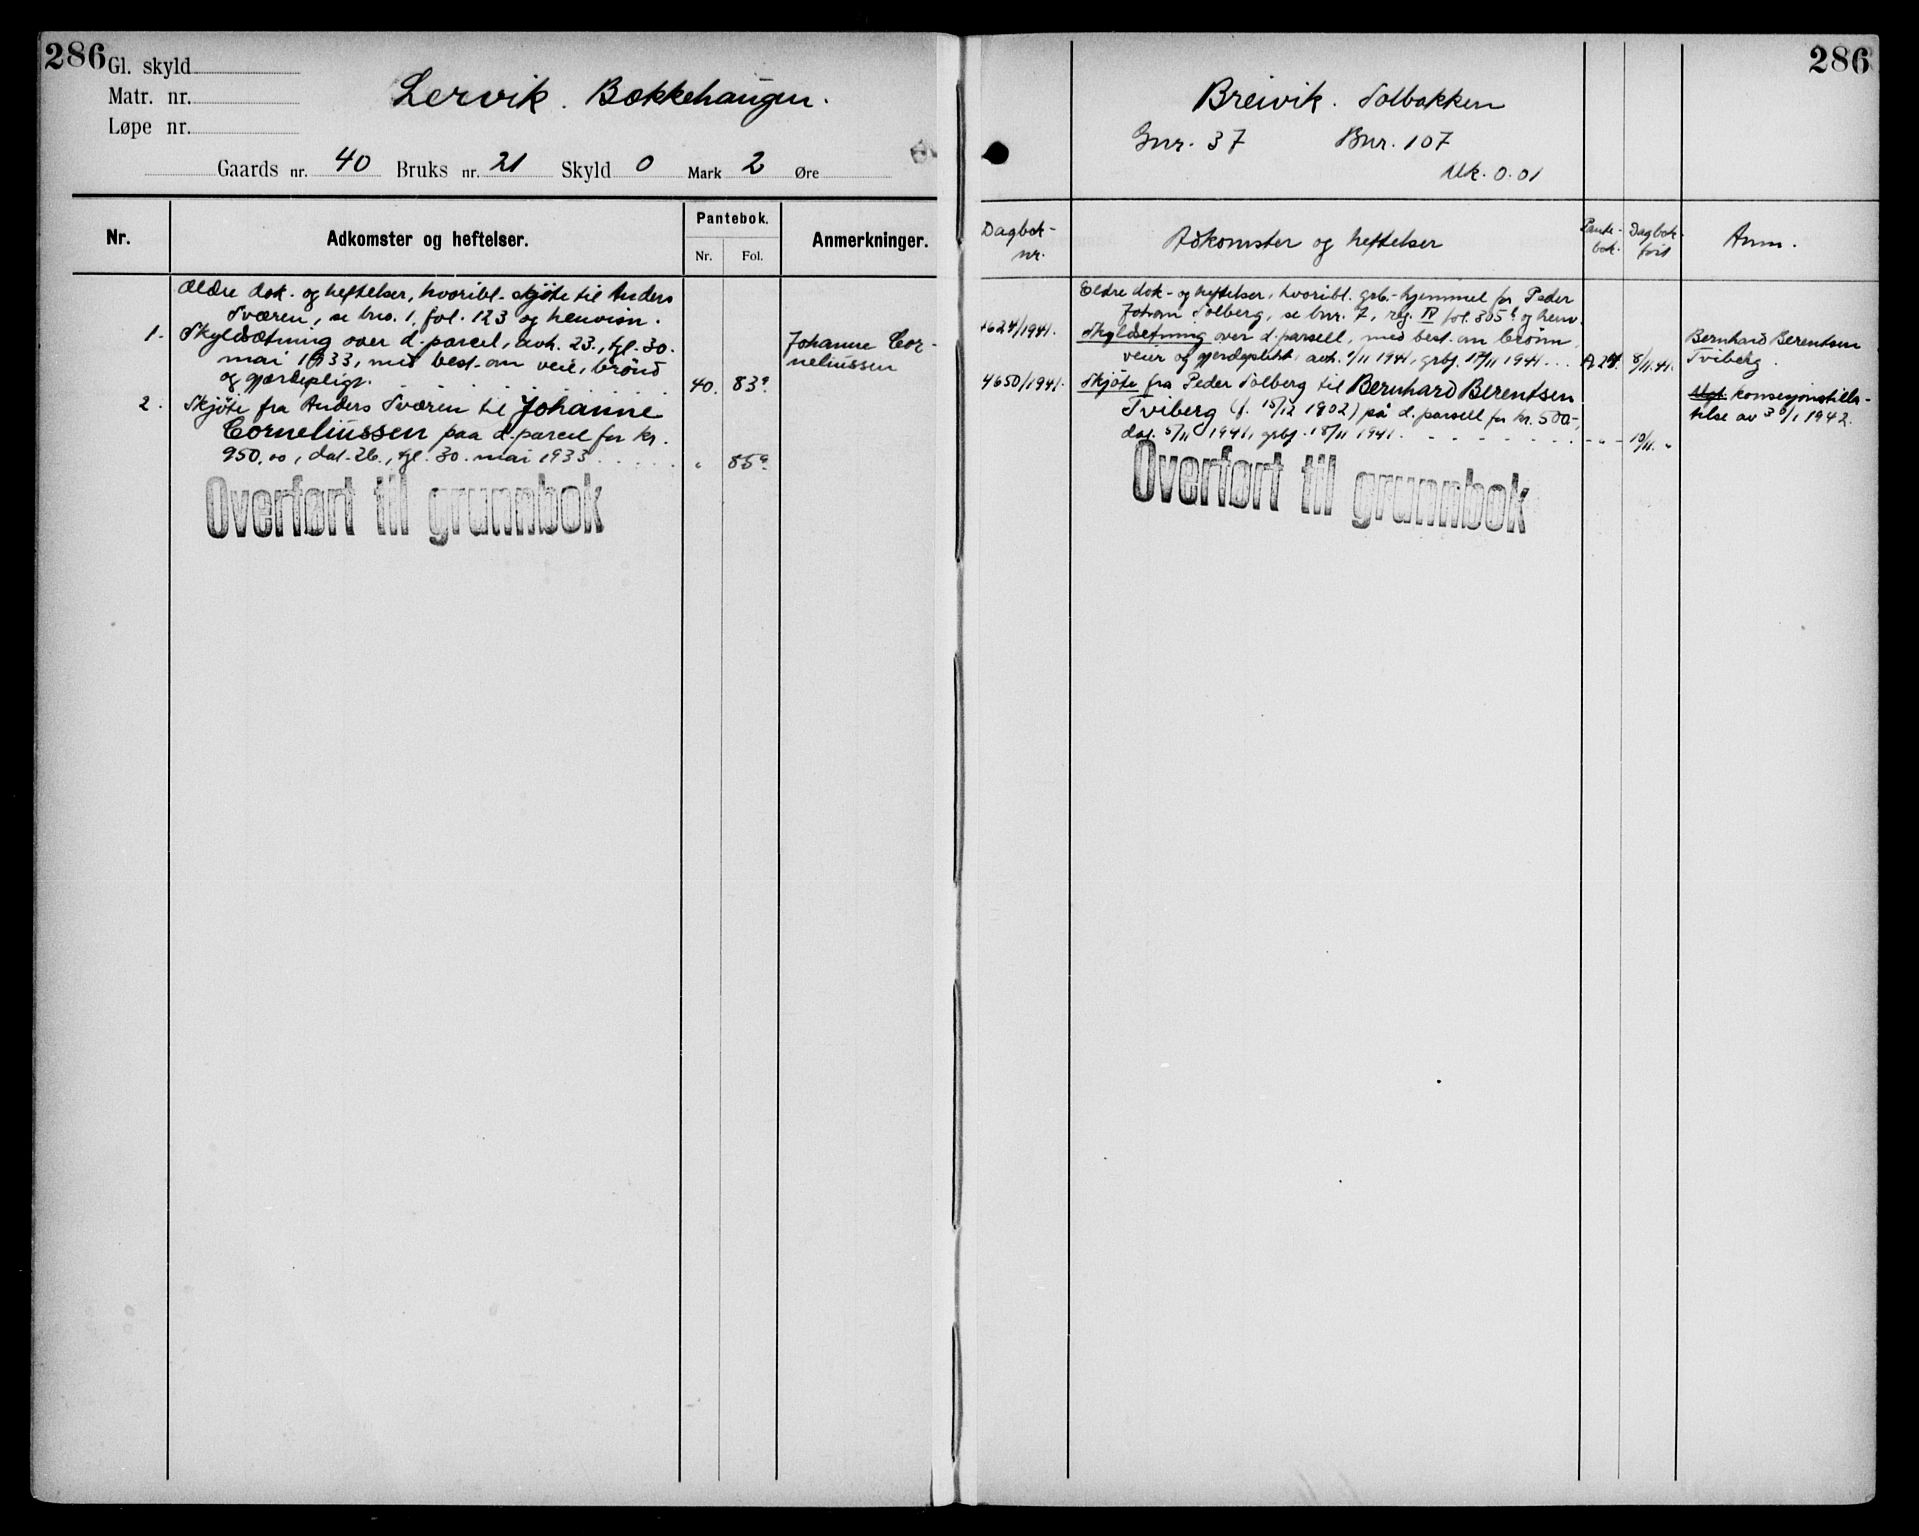 286
Gl. skyld
Matr. nr.
Løpe nr.
Lervik. Bakkehaugen.
Gaards nr. 40 Bruks nr. 21 Skyld 0 Mark 2 Øre
Nr.
Adkomster og heftelser.
Pantebok.
Nr. Fol.
Anmerkninger.
Ældre dok. og heftelser, hvoribl. skjöte til Anders
Sværen, se bno. 1, fol. 123 og henvisn.
1. Skyldsætning over d. parcel, avh. 23., tgl. 30.
mai 1933, med best. om veie, brönd
og gjærdepligt. 40. 83a
Johanne Cor-
neliussen
2. Skjöte fra Anders Sværen til Johanne
Corneliussen paa d. parcel for kr.
950.00, dat. 26., tgl. 30. mai 1933 . . . . . " 85a
Overført til grunnbok
286
Breivik. Solbakken
Gnr. 37 Bnr. 107
Mk. 0.01
Dagbok-
nr.
Adkomster og heftelser
Pante-
bok.
Dagbok-
ført
Anm.
Eldre dok- og heftelser, hvoribl. grb.-hjemmel for Peder
Johan Solberg, se bnr. 7, reg. IV fol. 305b og henv.
4624/1941. Skyldsetning over d. parsell, med best. om brönn,
veier og gjerdeplikt, avh. 1/11 1941, grbf. 17/11 1941 . . . A 24. 8/11.41.
Bernhard Berentsen
Tviberg.
4650/1941. Skjöte fra Peder Solberg til Bernhard Berentsen
Tviberg (f. 15/12 1902) på d. parsell for kr. 500-,
dat. 5/11 1941, grbf. 18/11 1941. - - - - - - - - - 10/11. "
konsesjonstilla-
telse av 30/1 1942.
Overført til grunnbok